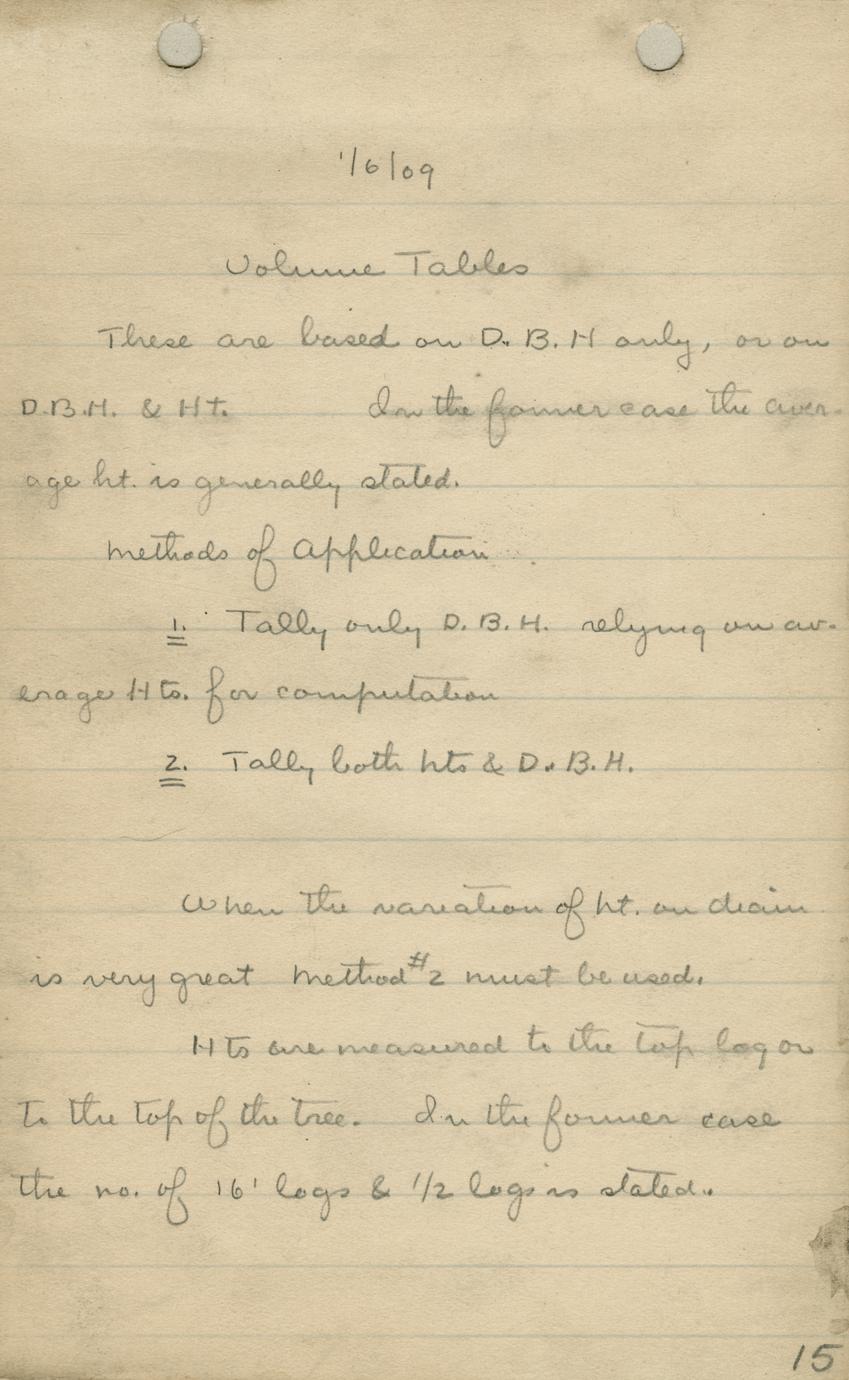 1/6/09
Volume Tables
These are based on D.B.H only, or on
D.B.H. & Ht. In the former case the aver-
age ht. is generally stated.
Methods of Application
1. Tally only D.B.H. relying on av-
erage Hts. for computation
2. Tally both hts & D.B.H.
When the variation of ht. on
is very great Method #2 must be used.
Hts are measured to the top log or
to the top of the tree. In the former case
the no. of 16' logs & 1/2 logs is stated.
15